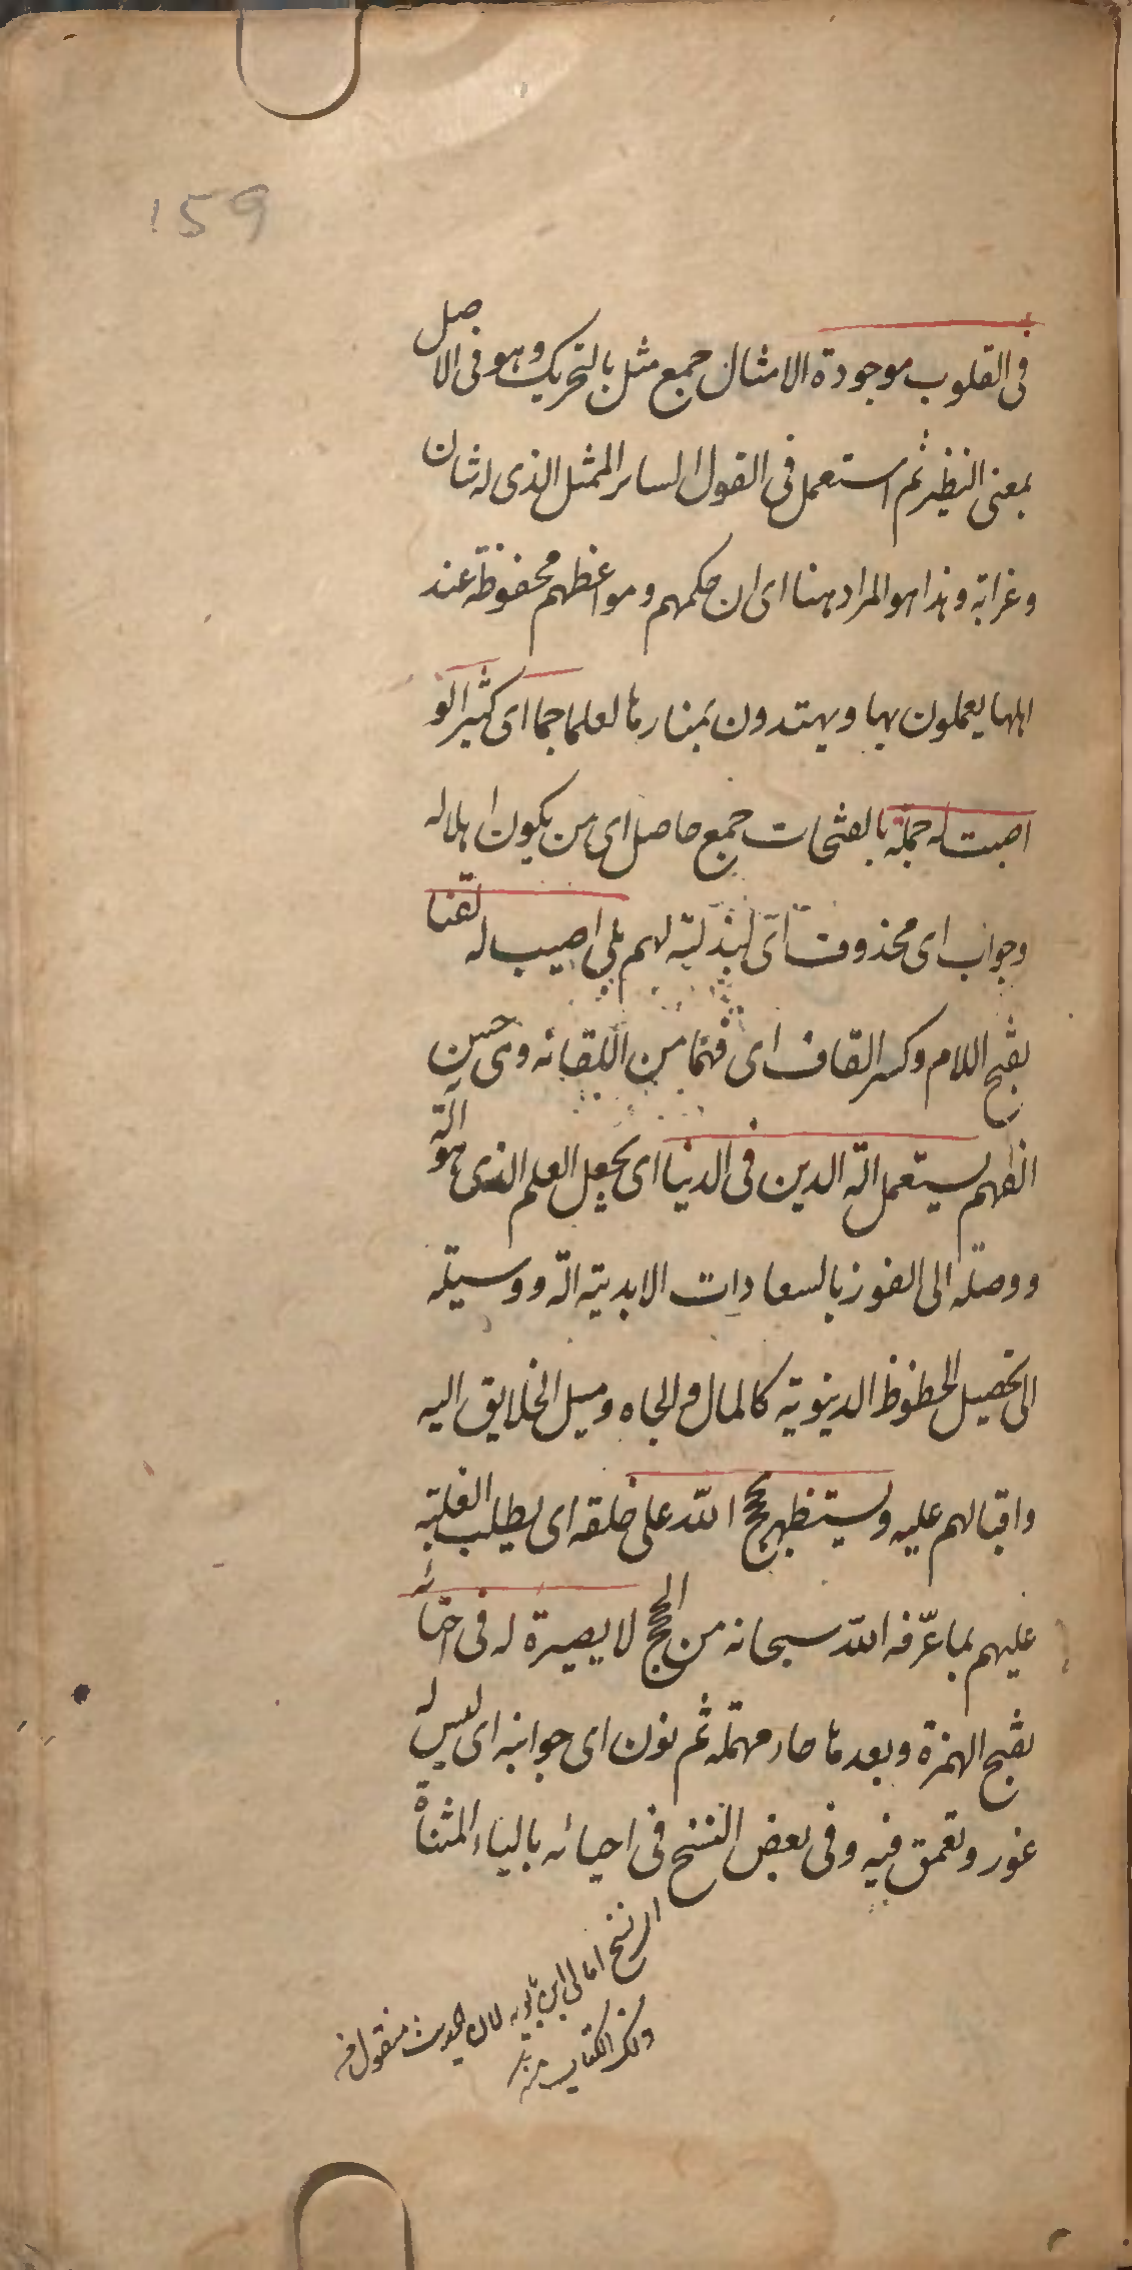 159
فى القلوب موجودة الامثال جمع مثل بالتحريك وهو فى الاصل
بمعنى النظير ثم استعمل فى القول الساير الممثل الذى له شان
وغرابة وهذا هو المراد ههنا اى ان حكمهم ومواعظهم محفوظة عند
اهلها يعملون بها ويهتدون بمنارها لعلما جما اى كثيرا لو
اصبت له حملة بالفتحات جمع حامل اى من يكون اهلا له
وجواب اى محذوف اى لبذلته لهم بلى اصيب له لقنا
بفتح اللام وكسر القاف اى فهما من اللقانه وهى حسن
الفهم يستعمل الة الدين فى الدنيا اى يجعل العلم الذى هو آلة
ووصلة الى الفوز بالسعادات الابدية الة ووسيلة
الى تحصيل الحظوظ الدينوية كالمال والجاه وميل الخلايق اليه
واقبالهم عليه ويستظهر بحجج الله على خلقه اى يطلب الغلبة
عليهم بما عرّفه الله سبحانه من الحجج لا بصيرة له فى احنائه
بفتح الهمزة وبعدها حاء مهملة ثم نون اى جوانبه اى ليس له
غور وتعمق فيه وفى بعض النسخ فى احيائه بالياء المثناة
اى نسخ امالى ابن بابويه لان الحديث منقول فى
ذلك الكتاب منه